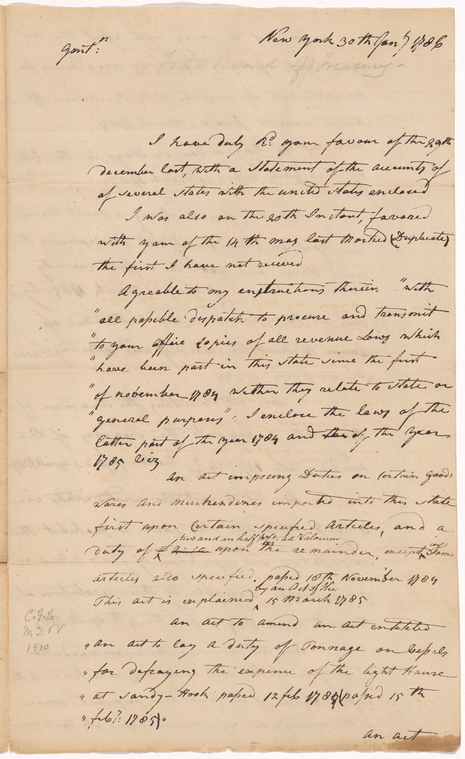 New York 30th Jany 1786
Gentn:
I have duly Rd. your favour of the 29th
december last, with a Statement of the accounts of
of several States with the united States enclosed
I was also on the 20th Instant, favored
with your of the 14th may last marked (Duplicate)
the first I have not recieved
Agreable to my enstructions therein "with
"all possible dispatch to procure and transmit
"to your office Copies of all revenue Laws which
"have been past in this State since the first
"of november 1784 wether they relate to State or
"general purposes". I enclose the laws of the
latter part of the year 1784 and of the year
1785 Viz
An act imposing Duties on Certain goods
wares and merchendizes imported into this State
first upon Certain specified Articles, and a
two and an half pr. Ct. ad Valorum
duty of upon the remainder, except on some
articles also specified. passed 18th November 1784
by an Act of the
This act is explained 15 March 1785
An act to amend an Act entitled
"An act to lay a duty of Tonnage on Vessels
"for defraying the expence of the light House
"at Sandy-Hook passed 12 feb 1784 (passed 15th
"feby: 1785)"
An act
1910